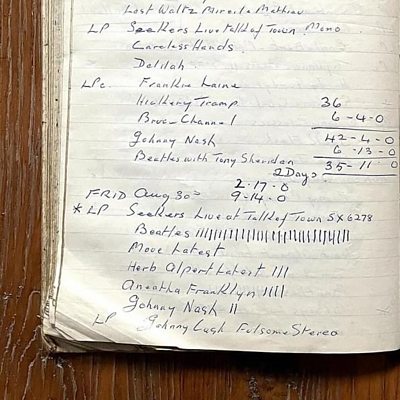 Last Waltz Mireile Mathieu
LP Seekers Live Talk of Town Mono
Careless Hands.
Delilah
LPs. Frankie Laine
Hickery Tramp 36
Bruce Channel 6-4-0
Johnny Nash 42-4-0
Beatles with Tony Sheridan 6-13-0
2 Days 35-11 0
2-17-0
FRID Aug 30th 9-14-0
* LP Seekers Live at Talk of Town SX 6278
Beatles
Move Latest
Herb Alpert Latest III
Aneatha Franklyn IIII
Johnny Nash II
LP Johnny Cash Fulsome Stereo